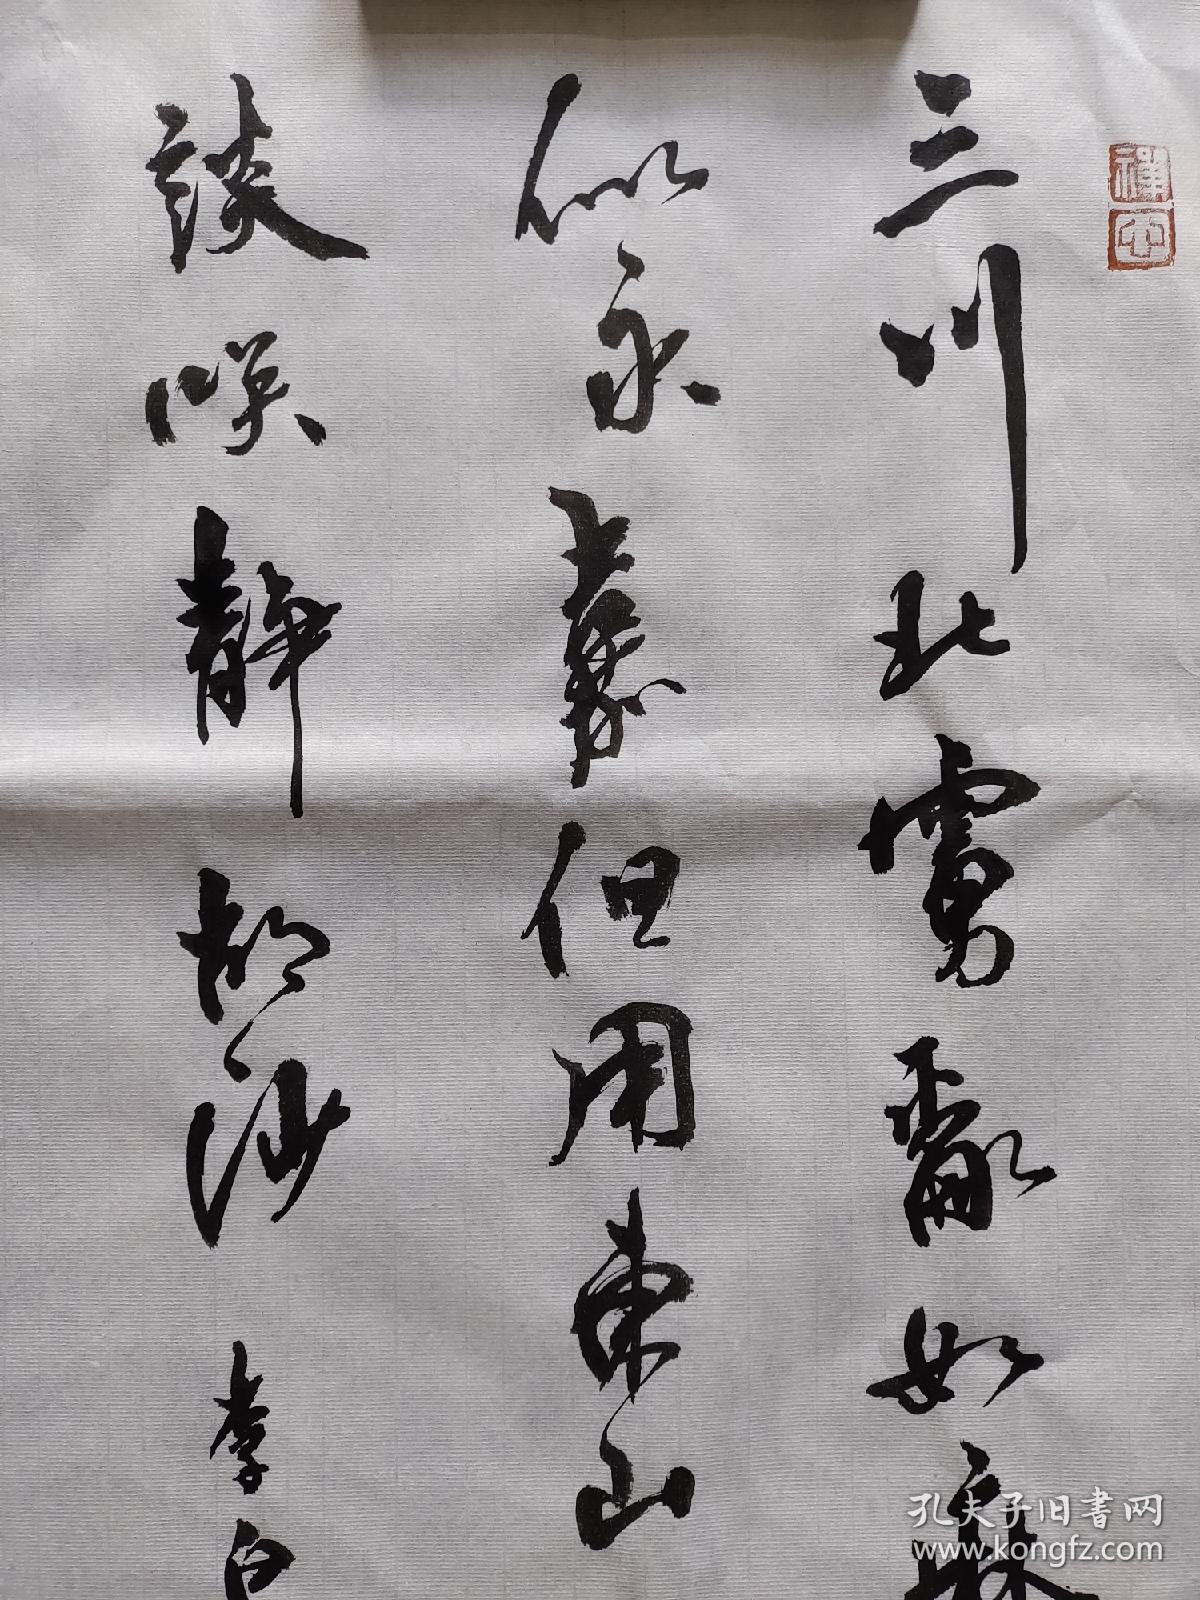 禪心
三川北虜亂如麻
似永嘉但用東山
談咲靜胡沙 李白
孔夫子旧书网
www.kongfz.com